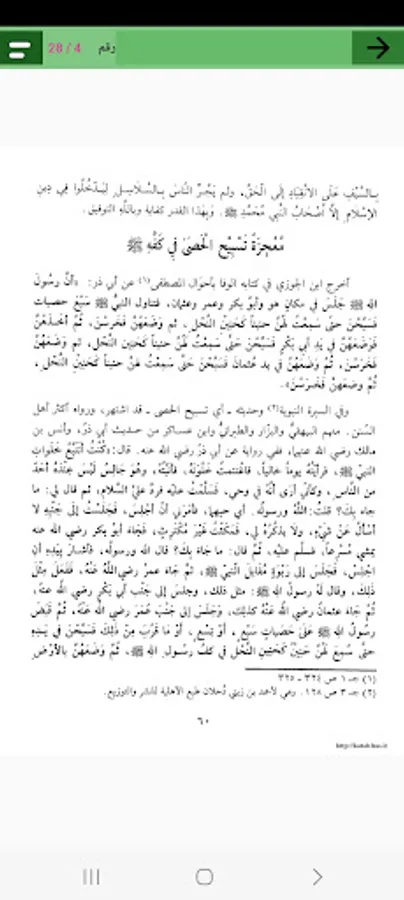 28 / 4 رقم
بِالسَّيْفِ عَلَى الانْقِيَادِ إِلَى الْحَقِّ. ولم يَجُرَّ النَّاسَ بِالسَّلاَسِلِ لِيَدْخُلُوا فِي دِينِ
الإِسْلاَمِ إِلاَّ أَصْحَابُ النَّبِي مُحَمَّدٍ ﷺ. وَبِهَذَا القدر كفاية وبالله التوفيق.
مُعْجِزَةُ تَسْبِيْحِ الْحَصَى فِي كَفِّهِ ﷺ
أخرج ابن الجوزي في كتابه الوفا بأحوال المصطفى(١) عن أبي ذر: «أَنَّ رَسُولَ
الله ﷺ جَلَسَ في مكانٍ هو وأبو بكر وعمر وعثمان، فتناول النبيُّ ﷺ سَبْعَ حصيات
فَسَبَّحْنَ حتى سَمِعْتُ لَهُنَّ حنيناً كَحَنِينِ النَّحْلِ، ثم وَضَعَهُنَّ فَخَرِسْنَ، ثُمَّ أَخَذَهُنَّ
فَوَضَعَهُنَّ فِي يَدِ أَبِي بَكْرٍ فَسَبَّحْنَ حَتَّى سَمِعْتُ لَهُنَّ حنيناً كَحَنِينِ النَّحْلِ، ثم وَضَعَهُنَّ
فَخَرِسْنَ، ثُمَّ وَضَعَهُنَّ في يد عُثمانَ فَسَبَّحْنَ حَتَّى سَمِعْتُ لهنَّ حنيناً كَحَنِينِ النَّحْلِ،
ثُمَّ وضعهنَّ فَخَرِسْنَ».
وفي السيرة النبوية(٢) وحديثه ـ أي تسبيح الحصى ـ قد اشتهر، ورواه أكثر أهل
السُّنن. منهم البيهقي والبزار والطبراني وابن عساكر من حديث أبي ذر، وأنس بن
مالك رضي الله عنهما، ففي رواية عن أبي ذرٍّ رضي الله عنه. قال: «كُنْتُ أَتَتَبَّعُ خَلَوَاتِ
النَّبِي ﷺ، فرأيتُهُ يوماً خالياً، فاغتنمتُ خَلْوَتَهُ، فأتيتُهُ، وهُوَ جَالِسٌ لَيْسَ عِنْدَهُ أَحَدٌ
من النَّاس، وكأنِّي أرَى أَنَّهُ في وحي. فسَلَّمْتُ عليه فردَّ عليَّ السَّلام، ثم قال لي: ما
جاء بِكَ؟ قلتُ: اللَّهُ ورسوله. أي حبهما، فأمرني أنْ أَجْلِسَ، فَجَلَسْتُ إلى جَنْبِهِ لا
أَسْأَلُ عَنْ شَيْءٍ، ولا يذكُرُهُ لي. فمكثْتُ غَيْرَ مُكْتَرِثٍ، فَجَاءَ أبو بكر رضي الله عنه
يمشي مُسْرِعاً، فسلَّم عليه، ثُمَّ قال: ما جَاءَ بِكَ؟ قال الله ورسوله. فأشار بِيَدِهِ أنِ
اجْلِسْ، فَجَلَسَ إلى رَبْوَةٍ مُقَابِلَ النَّبِيِّ ﷺ، ثمَّ جَاءَ عمرُ رضي اللَّهُ عَنْهُ، فَفَعَلَ مِثْلَ
ذَلِكَ، وقال لَهُ رسول الله ﷺ: مثل ذلك، وجلس إلى جَنْبِ أبي بَكْرٍ رضي الله عنهُ،
ثُمَّ جَاءَ عثمانُ رضي الله عَنْهُ كذلك، وَجَلَسَ إلى جَنْبِ عُمَرَ رضي الله عَنْهُ، ثُمَّ قَبَضَ
رسولُ الله ﷺ عَلَى حَصَيَاتٍ سَبْعٍ، أَوْ تِسْعٍ، أَوْ مَا قَرُبَ مِنْ ذَلِكَ فَسَبَّحْنَ فِي يَدِهِ
حتَّى سُمِعَ لَهُنَّ حَنِينٌ كَحَنِينِ النَّحْلِ فِي كفِّ رسولِ الله ﷺ، ثُمَّ وَضَعَهُنَّ بالأَرْضِ
(١) جـ ١ ص ٣٢٤ ـ ٣٢٥
(٢) جـ ٣ ص ١٢٨. وهي لأحمد بن زيني دَحلان طبع الأهلية للنشر والتوزيع.
٦٠